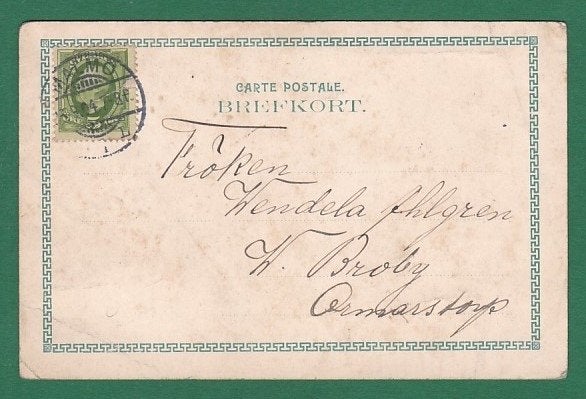 CARTE POSTALE.
BREFKORT.
Fröken
Wendela Ahlgren
W. Broby
Ormarstorp